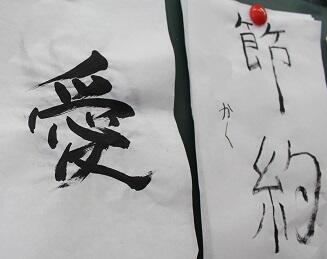 節約
かく
愛